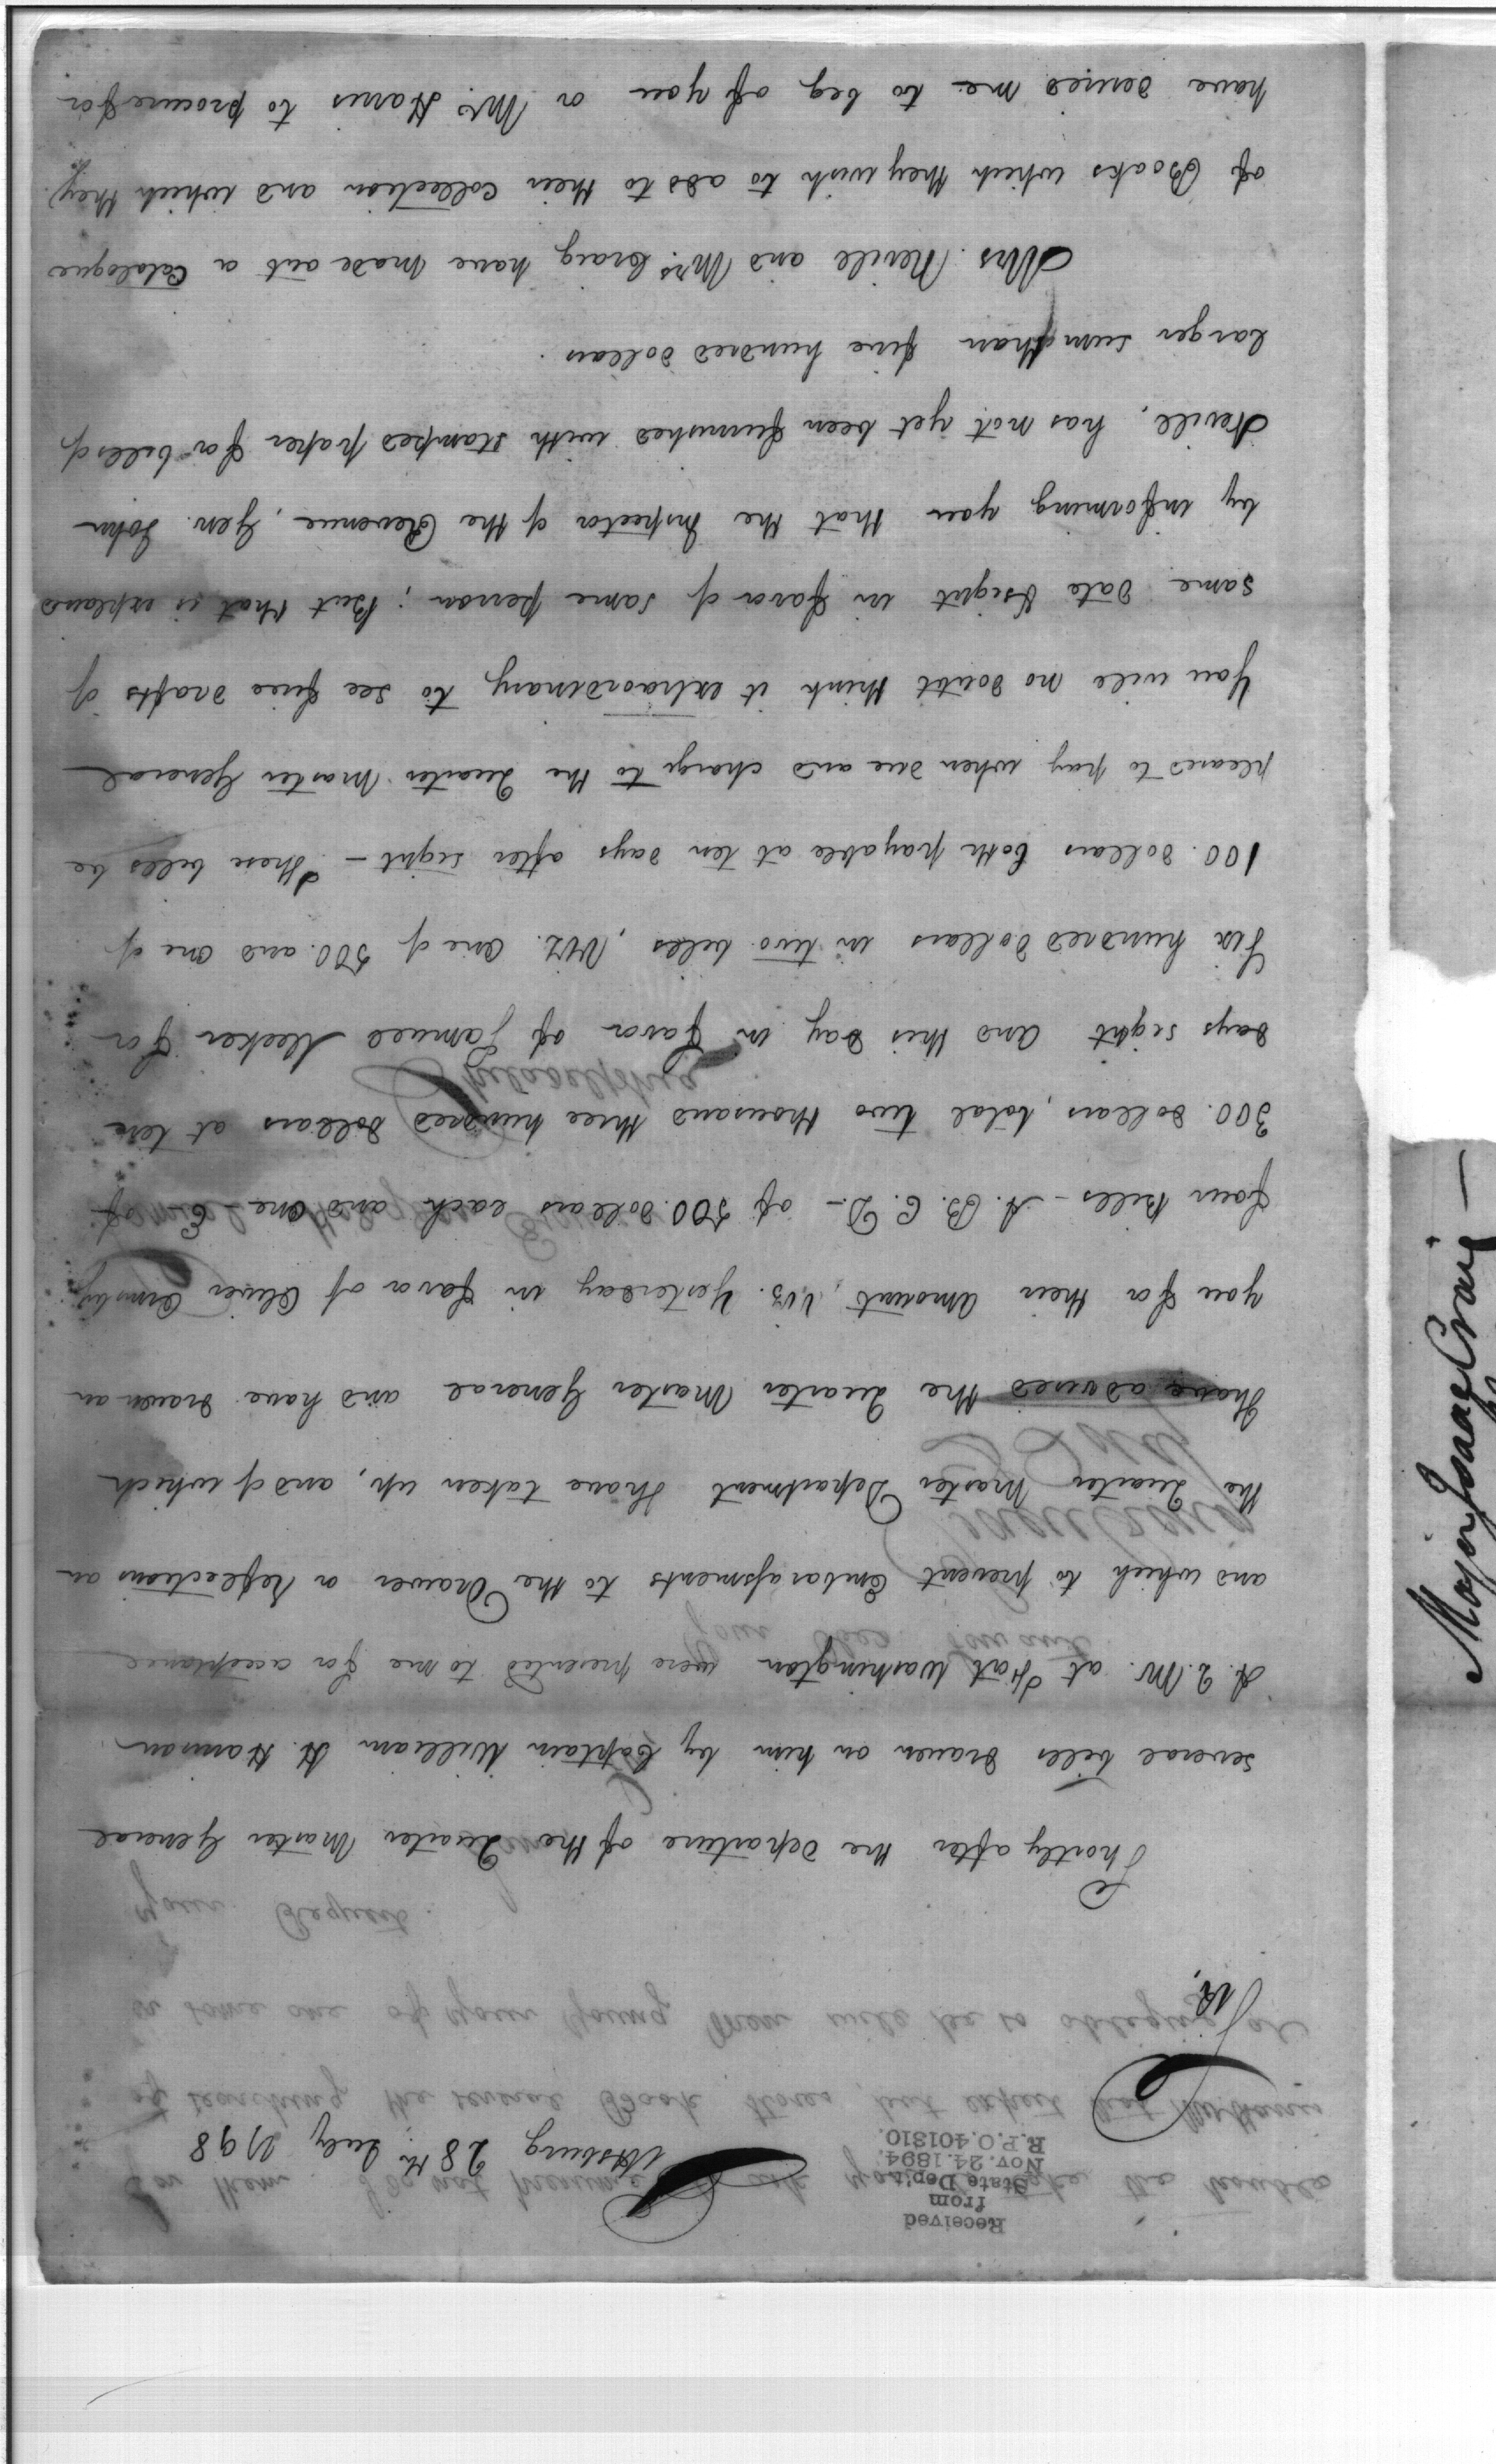 Received
from
State Dep't.
Nov. 24. 1894.
R.P.O. 401810.
Pittsburg 28th July 1798
Sir,
Shortly after the departure of the Quarter Master General
several bills drawn on him by Captain William H. Harrison
A. Q. Mr. at Fort Washington were presented to me for acceptance
and which to prevent Embarassments to the Drawer or Reflections on
the Quarter Master Department I have taken up, and of which
I have advised the Quarter Master General and have drawn on
you for their amount, Viz. Yesterday in favor of Oliver Ormsby
four Bills - A. B. C. D. - of 500. dollars each and one E of
300. dollars, total two thousand three hundred dollars at ten
days sight and this day in favor of Samuel Meeker for
Six hundred dollars in two bills, Viz. One of 500. and one of
100. dollars both payable at ten days after sight - These bills be
pleased to pay when due and charge to the Quarter Master General
You will no doubt think it extraordinary to see five drafts of
same date & sight in favor of same person; But that is explained
by informing you that the Inspector of the Revenue, Gen. John
Nevill, has not yet been furnished with stamped paper for bills of
larger sum than five hundred dollars.
Mrs. Nevill and Mrs. Craig have made out a Catalogue
of Books which they wish to add to their collection and which they
have desired me to beg of you or Mr. Harris to procure for
Major Isaac Craig
for them. I do not presume to ask you to take the trouble
of searching the several Book Stores, but expect that Mr. Harris
or some one of your Young Men will be so obliging at
your Request.
Isaac Craig
Philadelphia